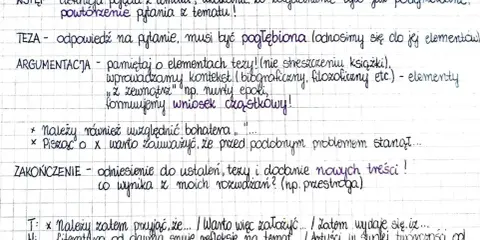 powtórzenie pytania z tematu!
TEZA - odpowiedź na pytanie, musi być pogłębiona (odnosimy się do jej elementów)
ARGUMENTACJA - pamiętaj o elementach tezy! (nie streszczeniu książki),
wprowadzamy kontekst (biograficzny, filozoficzny etc.) - elementy
"z zewnątrz" np. nurty epoki,
formułujemy wniosek cząstkowy!
* Należy również uwzględnić bohatera "...
* Pisząc o x warto zauważyć, że przed podobnym problemem stanął...
ZAKOŃCZENIE - odniesienie do ustaleń, tezy i dodanie nowych treści!
co wynika z moich rozważań? (np. przestroga)
T: * Należy zatem przyjąć, że... / Warto więc założyć... / Zatem wydaje się, iż...
Literatura od dawna snuje refleksję na temat